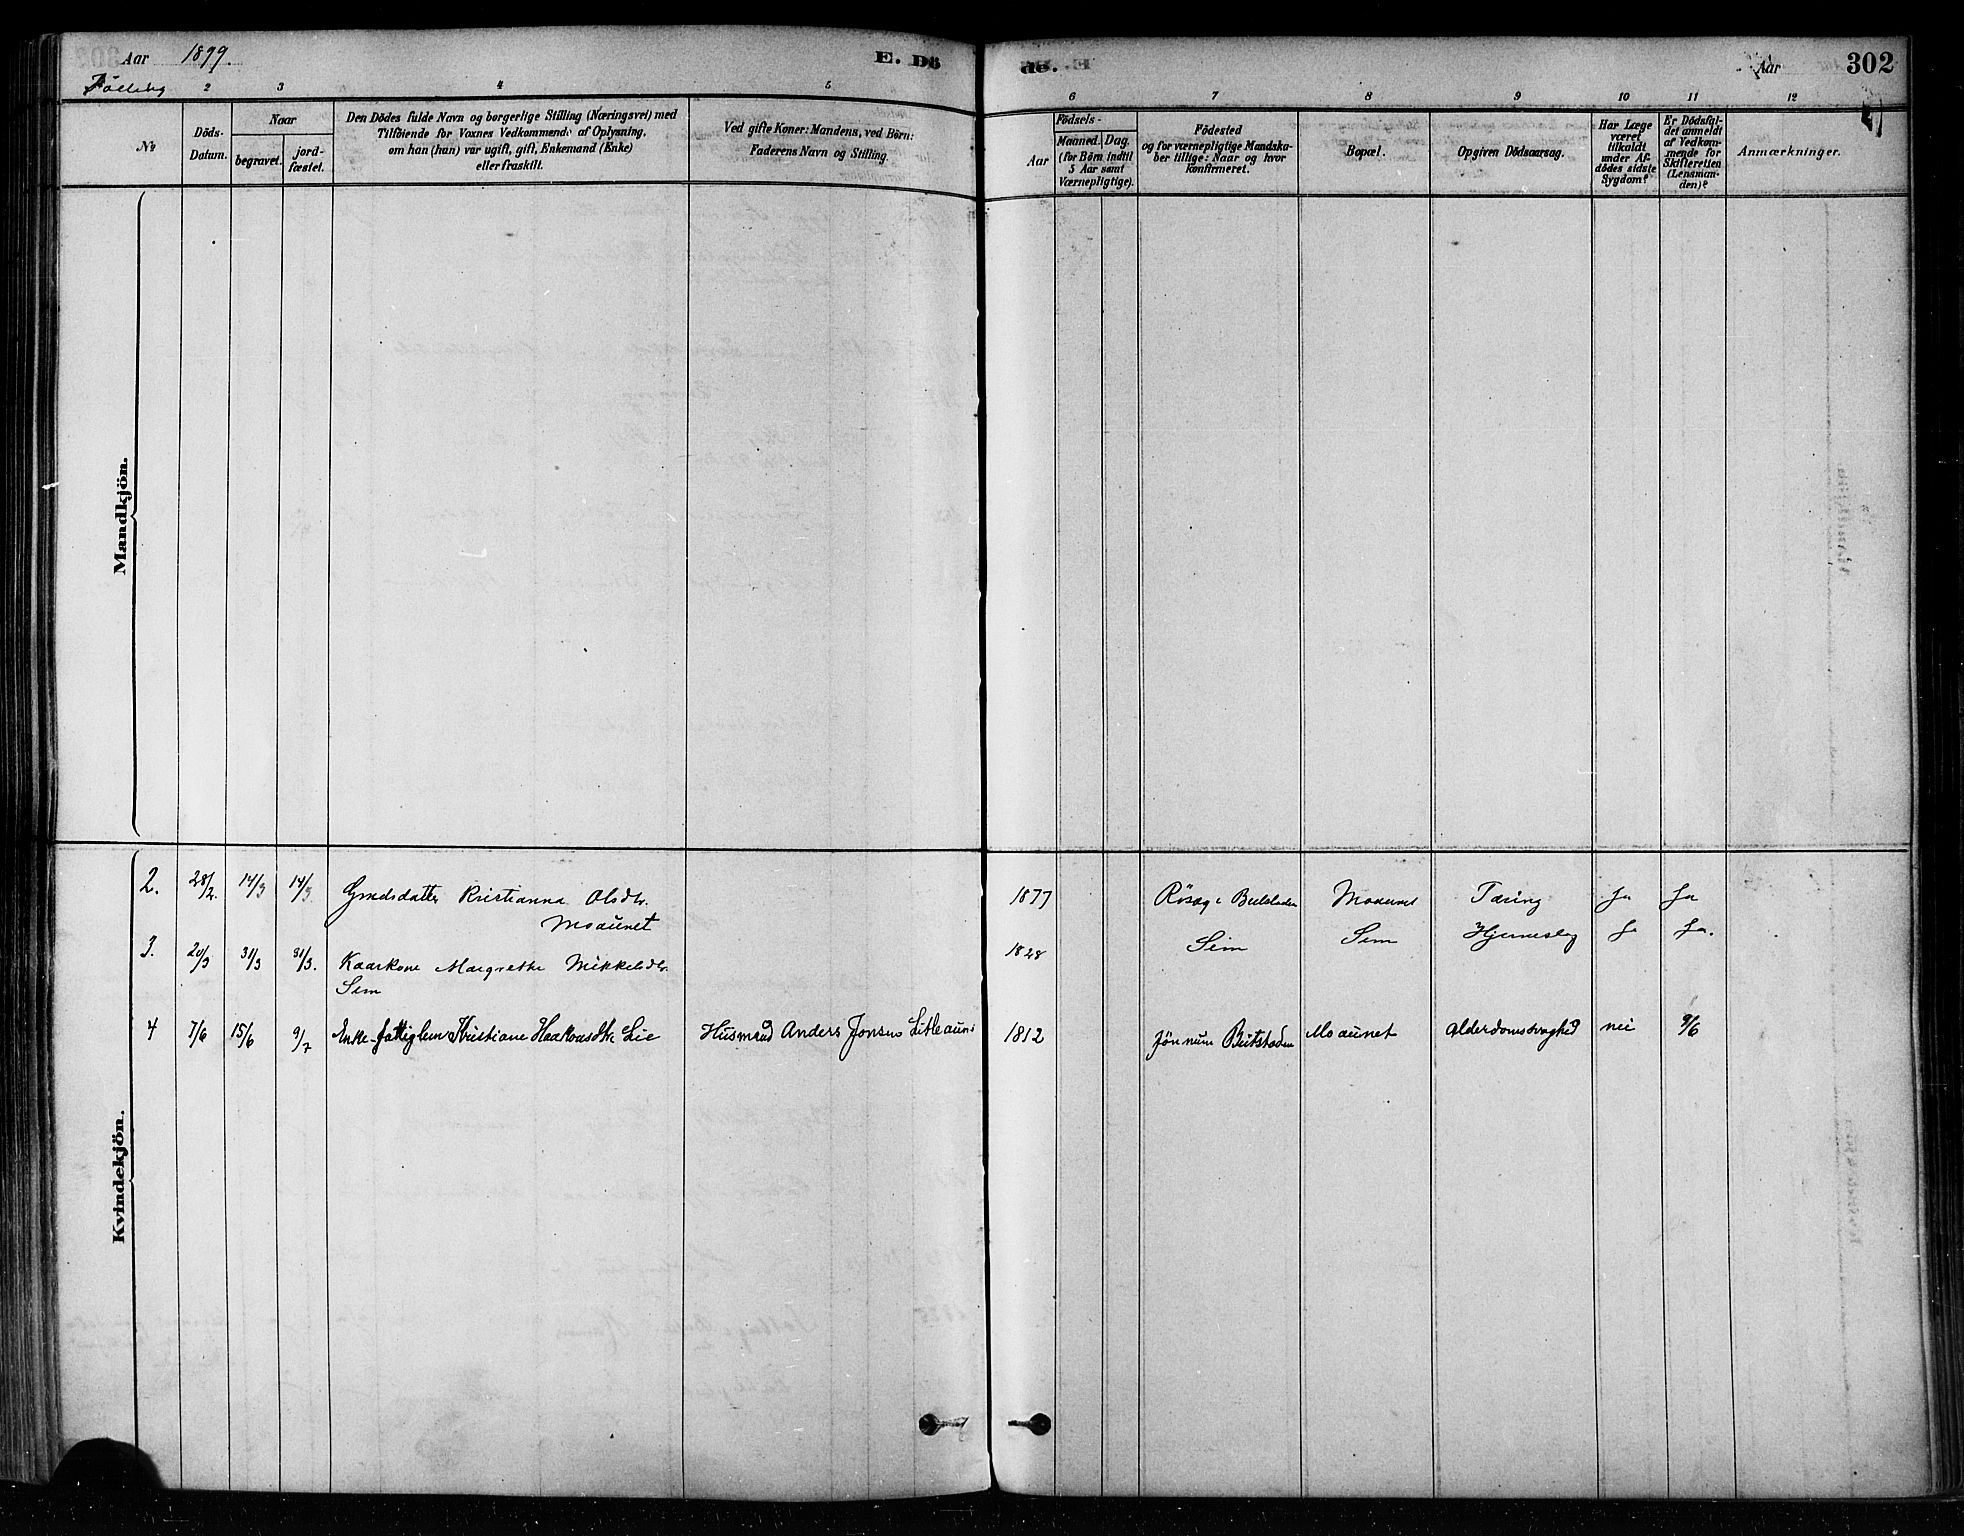 Aar 1899. E. Dö de. Aar 302
Følling
2 3 4 5 6 7 8 9 10 11 12
No
Döds-Datum.
Naar
begravet.
jord-fæstet.
Den Dödes fulde Navn og borgerlige Stilling (Næringsvei) med
Tilföiende for Voxnes Vedkommende af Oplysning,
om han (hun) var ugift, gift, Enkemand (Enke)
eller fraskilt.
Ved gifte Koner: Mandens, ved Börn:
Faderens Navn og Stilling.
Födsels-
Aar
Maaned. Dag.
(for Börn indtil
5 Aar samt
Værnepligtige).
Födested
og for værnepligtige Mandska-
ber tillige: Naar og hvor
konfirmeret.
Bopæl.
Opgiven Dödsaarsag.
Har Læge
været
tilkaldt
under Af-
dödes sidste
Sygdom?
Er Dödsfal-
det anmeldt
af Vedkom-
mende for
Skifteretten
(Lensman-
den)?
Anmærkninger.
Mandkjön.
Kvindekjön.
2. 28/2. 14/3 14/3 Gmdsdatter Kristianna Olsdtr. 1877 Beitstaden Moaunet Tæring Ja Ja
Moaunet
3. 20/3 31/3 31/3. Kaarkone Margrethe Mikkelsdtr. 1828 Sem Sem Hjerneslag Ja Ja.
Sem
4 7/6 15/6 9/7 Enke fattiglem Kristiane Haakonsdtr Lie Husmand Anders Jonsens Litleaunet 1812 Beitstaden Moaunet Alderdomssvaghed nei 9/6